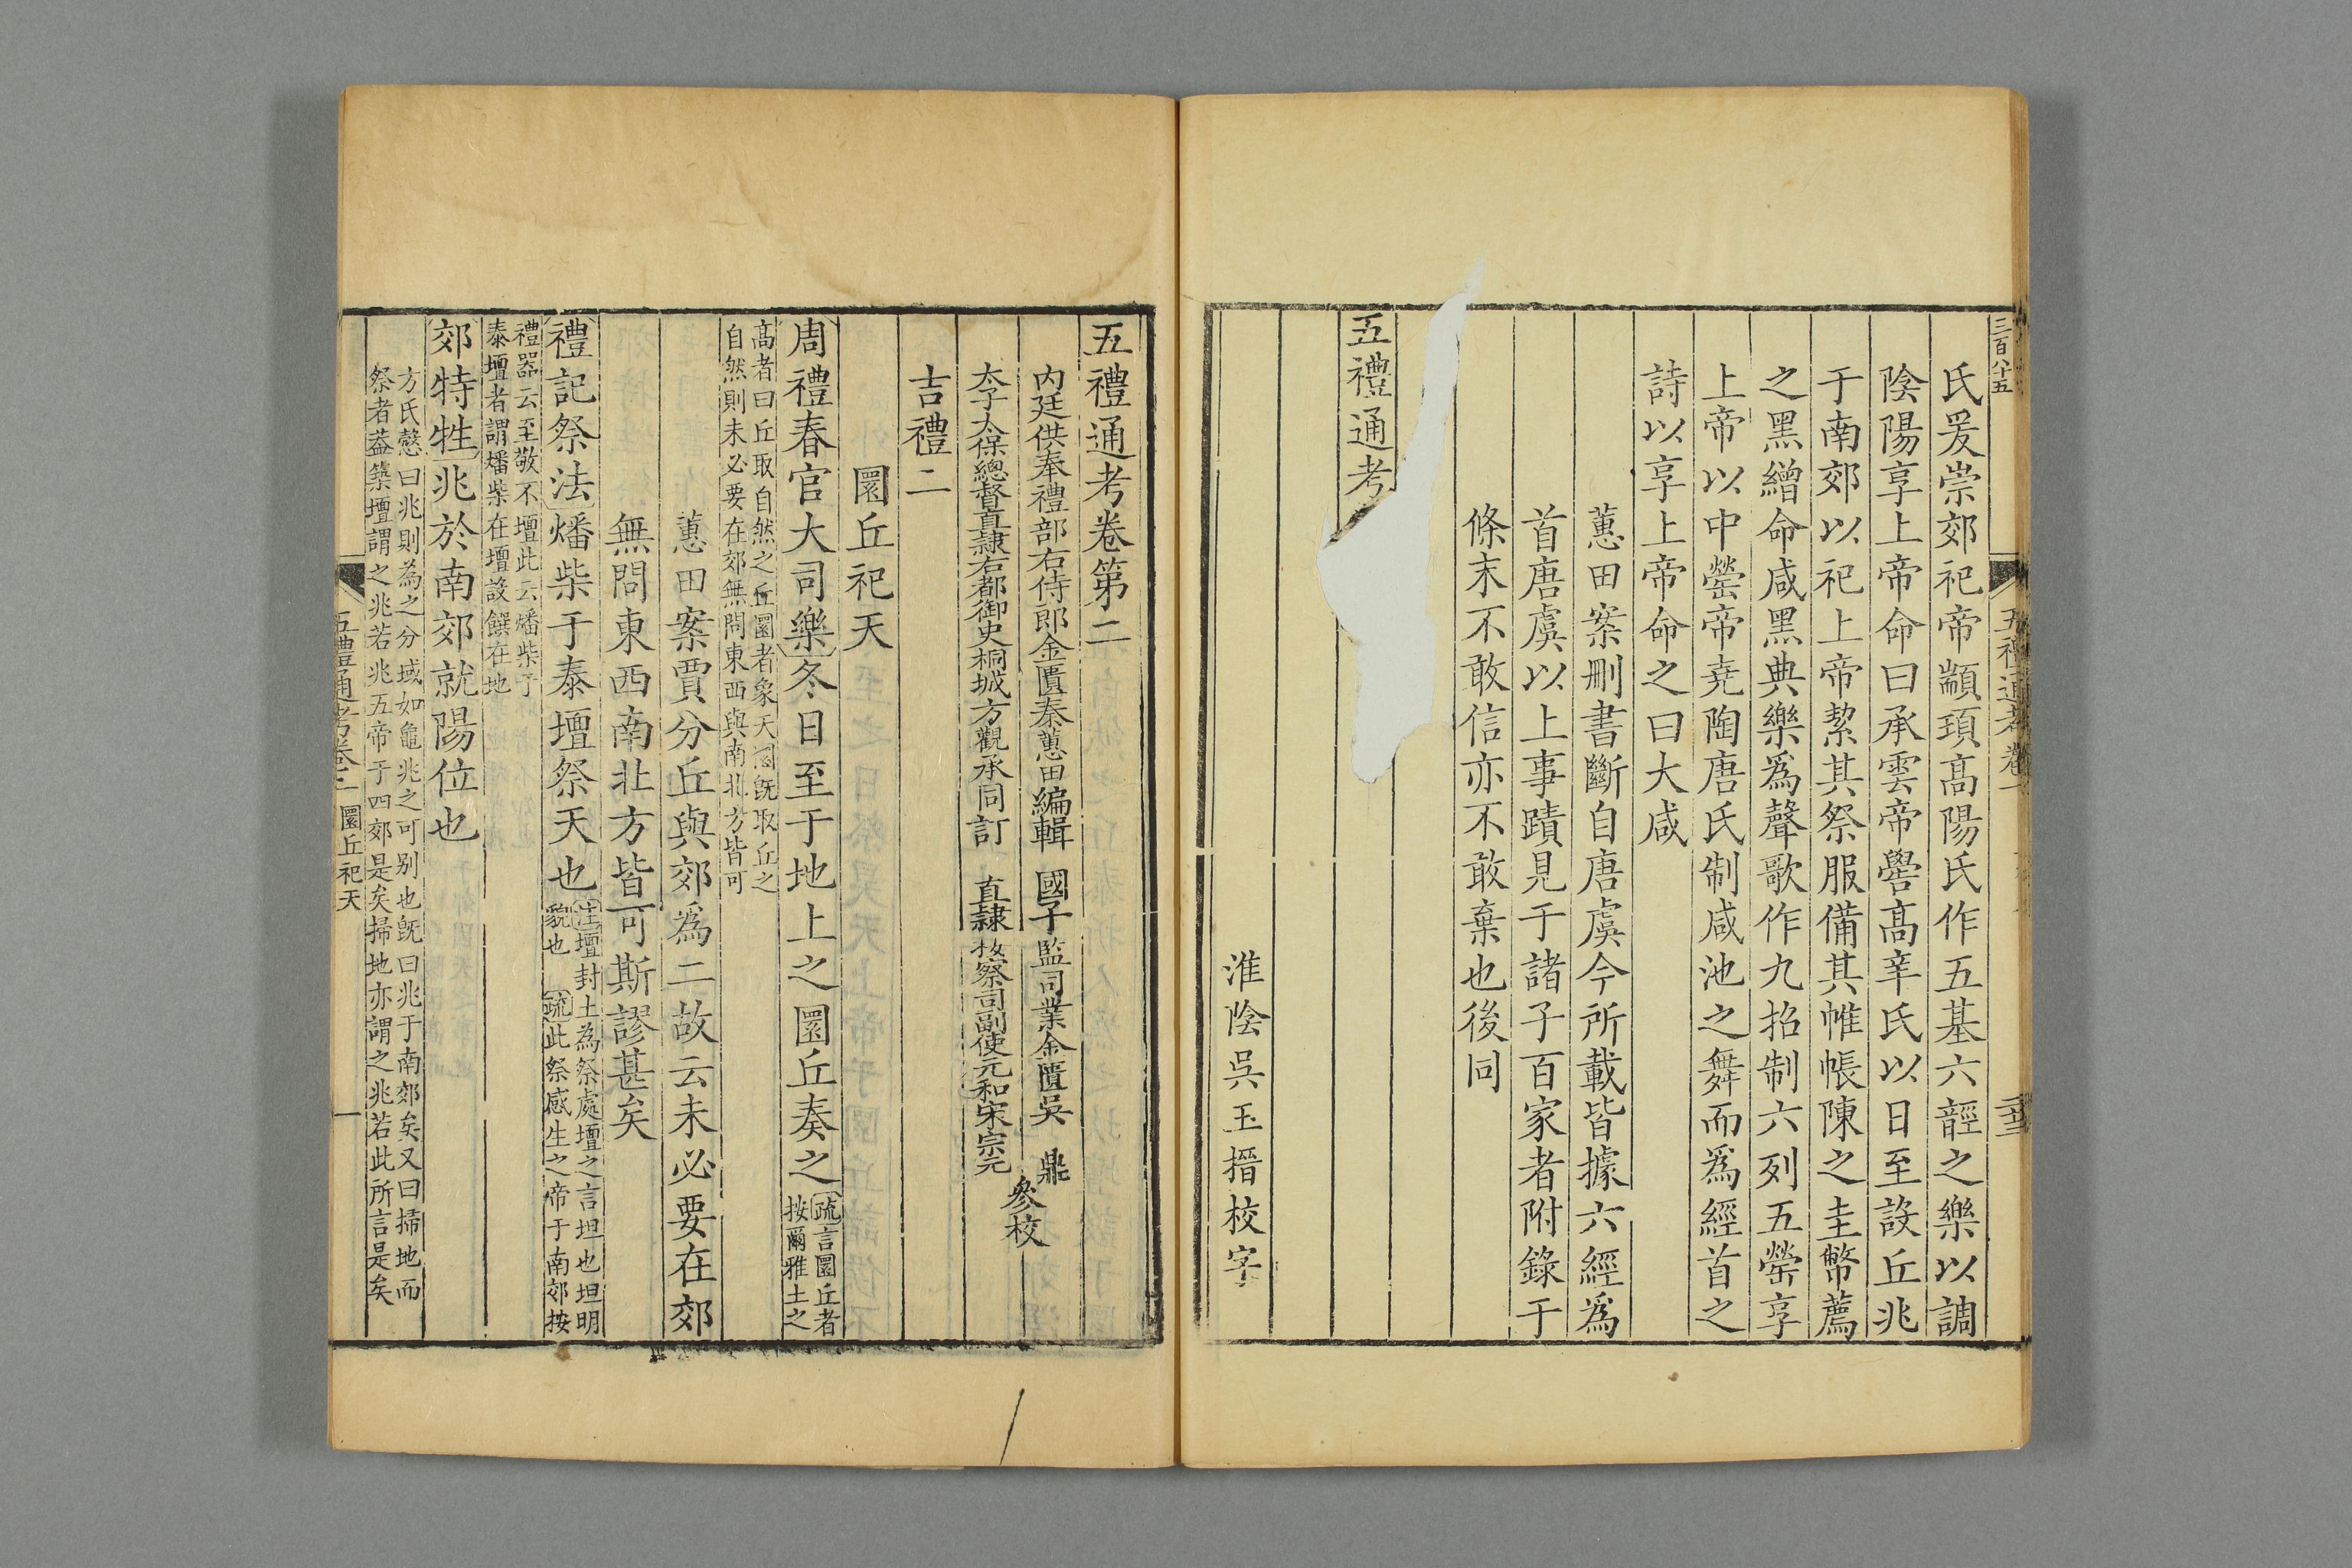 三百八十五
氏爰崇郊祀帝顓頊髙陽氏作五基六䪫之樂以調
陰陽享上帝命曰承雲帝嚳髙辛氏以日至設丘兆
于南郊以祀上帝絜其祭服備其帷帳陳之圭幣薦
之黑繒命咸黑典樂爲聲歌作九招制六列五罃享
上帝以中罃帝堯陶唐氏制咸池之舞而爲經首之
詩以享上帝命之曰大咸
蕙田案刪書斷自唐虞今所載皆據六經爲
首唐虞以上事蹟見于諸子百家者附錄于
條末不敢信亦不敢棄也後同
五禮通考
淮陰吳玉搢校字
五禮通考卷第二
内廷供奉禮部右侍郎金匱秦蕙田編輯 國子監司業金匱吳 鼎
太子太保總督直隷右都御史桐城方觀承同訂 直隷按察司副使元和宋宗元
參校
吉禮二
圜丘祀天
周禮春官大司樂冬日至于地上之圜丘奏之
疏言圜丘者
按爾雅土之
髙者曰丘取自然之丘圜者象天圜旣取丘之
自然則未必要在郊無問東西與南北方皆可
蕙田案賈分丘與郊爲二故云未必要在郊
無問東西南北方皆可斯謬甚矣
禮記祭法燔柴于泰壇祭天也
注壇封土為祭處壇之言坦也坦明
貌也 疏此祭感生之帝于南郊按
禮器云至敬不壇此云燔柴于
泰壇者謂燔柴在壇設饌在地
郊特牲兆於南郊就陽位也
方氏慤曰兆則為之分域如龜兆之可别也旣曰兆于南郊矣又曰掃地而
祭者葢築壇謂之兆若兆五帝于四郊是矣掃地亦謂之兆若此所言是矣
五禮通考卷二 圜丘祀天 一